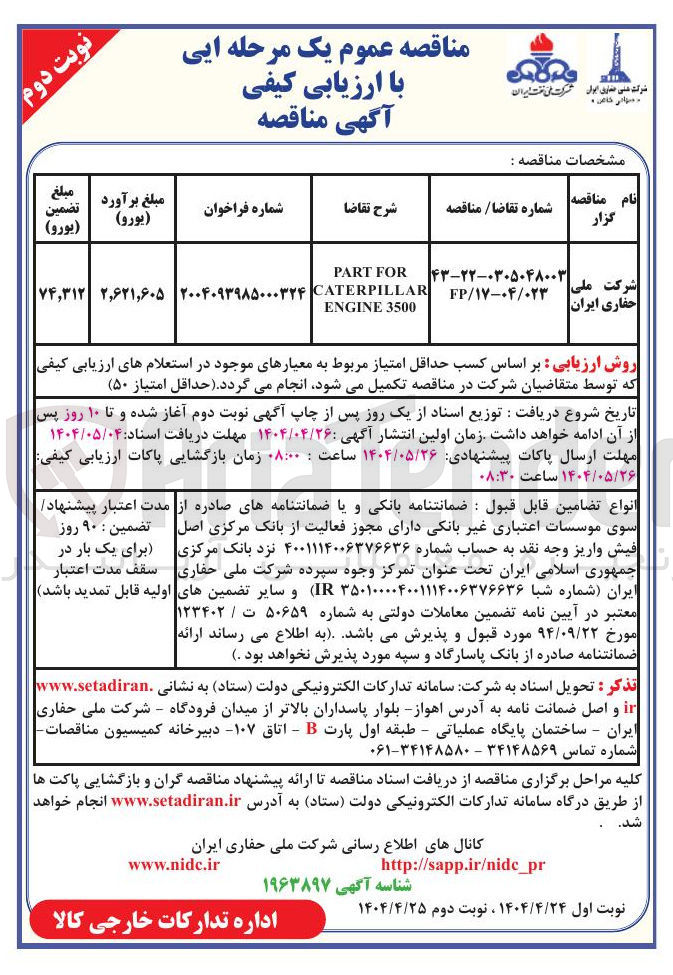 نوبت دوم
مناقصه عموم یک مرحله ایی
با ارزیابی کیفی
آگهی مناقصه
شرکت ملی نفت ایران
شرکت ملی حفاری ایران
«سهامی خاص»
مشخصات مناقصه :
نام مناقصه گزار
شماره تقاضا/ مناقصه
شرح تقاضا
شماره فراخوان
مبلغ برآورد (یورو)
مبلغ تضمین (یورو)
شرکت ملی حفاری ایران
۴۳-۲۲-۰۳۰۵۰۴۸۰۰۳
FP/۱۷-۰۴/۰۲۳
PART FOR
CATERPILLAR
ENGINE 3500
۲۰۰۴۰۹۳۹۸۵۰۰۰۳۲۴
۲,۶۲۱,۶۰۵
۷۴,۳۱۲
روش ارزیابی : بر اساس کسب حداقل امتیاز مربوط به معیارهای موجود در استعلام های ارزیابی کیفی
که توسط متقاضیان شرکت در مناقصه تکمیل می شود، انجام می گردد.(حداقل امتیاز ۵۰)
تاریخ شروع دریافت : توزیع اسناد از یک روز پس از چاپ آگهی نوبت دوم آغاز شده و تا ۱۰ روز پس
از آن ادامه خواهد داشت .زمان اولین انتشار آگهی :۱۴۰۴/۰۴/۲۶ مهلت دریافت اسناد:۱۴۰۴/۰۵/۰۴
مهلت ارسال پاکات پیشنهادی: ۱۴۰۴/۰۵/۲۶ ساعت : ۰۸:۰۰ زمان بازگشایی پاکات ارزیابی کیفی:
۱۴۰۴/۰۵/۲۶ ساعت ۰۸:۳۰
انواع تضامین قابل قبول : ضمانتنامه بانکی و یا ضمانتنامه های صادره از
سوی موسسات اعتباری غیر بانکی دارای مجوز فعالیت از بانک مرکزی اصل
فیش واریز وجه نقد به حساب شماره ۴۰۰۱۱۱۴۰۰۶۳۷۶۶۳۶ نزد بانک مرکزی
جمهوری اسلامی ایران تحت عنوان تمرکز وجوه سپرده شرکت ملی حفاری
ایران (شماره شبا IR ۳۵۰۱۰۰۰۰۴۰۰۱۱۱۴۰۰۶۳۷۶۶۳۶) و سایر تضمین های
معتبر در آیین نامه تضمین معاملات دولتی به شماره ۵۰۶۵۹ ت / ۱۲۳۴۰۲
مورخ ۹۴/۰۹/۲۲ مورد قبول و پذیرش می باشد. .(به اطلاع می رساند ارائه
ضمانتنامه صادره از بانک پاسارگاد و سپه مورد پذیرش نخواهد بود .)
مدت اعتبار پیشنهاد/
تضمین : ۹۰ روز
(برای یک بار در
سقف مدت اعتبار
اولیه قابل تمدید باشد)
تذکر : تحویل اسناد به شرکت: سامانه تدارکات الکترونیکی دولت (ستاد) به نشانی www.setadiran.
ir و اصل ضمانت نامه به آدرس اهواز- بلوار پاسداران بالاتر از میدان فرودگاه - شرکت ملی حفاری
ایران - ساختمان پایگاه عملیاتی - طبقه اول پارت B - اتاق ۱۰۷- دبیرخانه کمیسیون مناقصات-
شماره تماس ۳۴۱۴۸۵۶۹ - ۳۴۱۴۸۵۸۰-۰۶۱
کلیه مراحل برگزاری مناقصه از دریافت اسناد مناقصه تا ارائه پیشنهاد مناقصه گران و بازگشایی پاکت ها
از طریق درگاه سامانه تدارکات الکترونیکی دولت (ستاد) به آدرس www.setadiran.ir انجام خواهد
شد. .
کانال های اطلاع رسانی شرکت ملی حفاری ایران
http://sapp.ir/nidc_pr
www.nidc.ir
شناسه آگهی ۱۹۶۳۸۹۷
نوبت اول ۱۴۰۴/۴/۲۴ ، نوبت دوم ۱۴۰۴/۴/۲۵
اداره تدارکات خارجی کالا